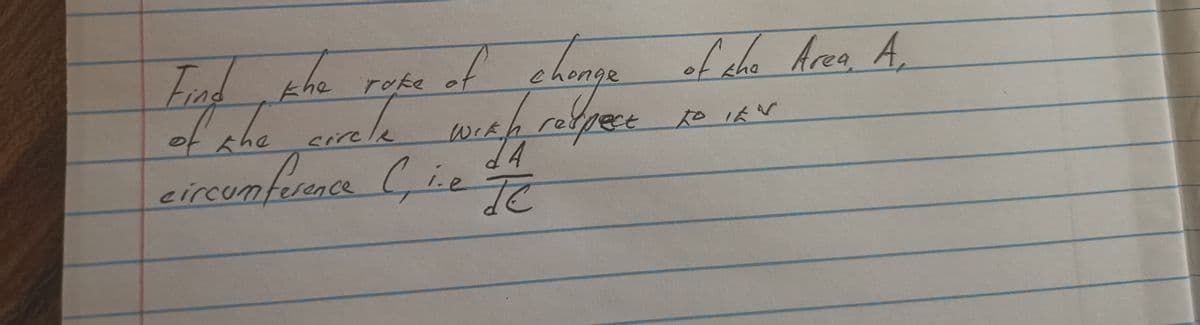 Find the rate of change of the Area, A,
of the circle with respect to its
circumference C, i.e dA/dC